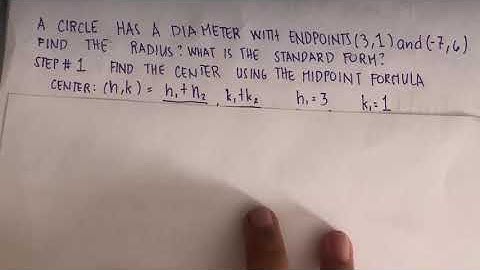 A CIRCLE HAS A DIAMETER WITH ENDPOINTS (3,1) and (-7,6)
FIND THE RADIUS? WHAT IS THE STANDARD FORM?
STEP #1 FIND THE CENTER USING THE MIDPOINT FORMULA
CENTER: (h,k) = h₁+h₂, k₁+k₂ h₁=3 k₁=1